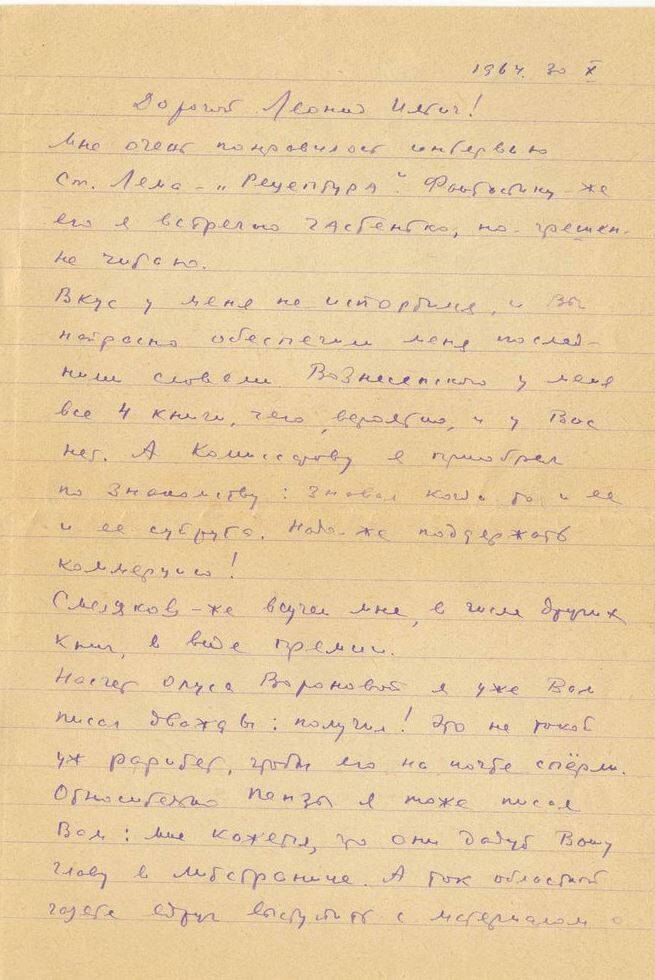 1964. 30 X
Дорогой Леонид Ильич!
Мне очень понравилось интервью
Ст. Лема – „Рецептура". Фантастику-же
его я встречаю частенько, но – грешен –
не читаю.
Вкус у меня не испортился, и Вы
напрасно обеспечили меня послед-
ними словами. Вознесенского у меня
все 4 книги, чего, вероятно, и у Вас
нет. А Комиссарову я приобрел
по знакомству: знавал когда то и ее
и ее супруга. Надо-же поддержать
коммерцию!
Смеляков-же вручен мне, в числе других
книг, в виде премии.
Насчет опуса Вороновой я уже Вам
писал дважды: получил! Это не такой
уж раритет, чтобы его на почте спёрли.
Относительно Пензы я тоже писал
Вам: мне кажется, что они дадут Вашу
главу в литстранице. А так областной
газете вдруг выступить с материалом о